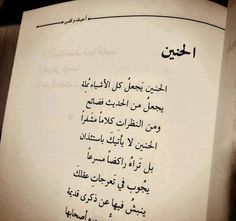 أحببتك وكفى
الحنين
الحنين يَجعلُ كل الأشياء مُملة
يجعلُ من الحديث فضائح
ومن النظراتِ كلاماً مشفراً
الحنين لا يأتيكَ باستئذان
بل تَراهُ راكضاً مسرعاً
يجُوب في تَعرجاتِ عقلكَ
ينبشُ فيهِ عن ذكرى قديمة
أصحابها